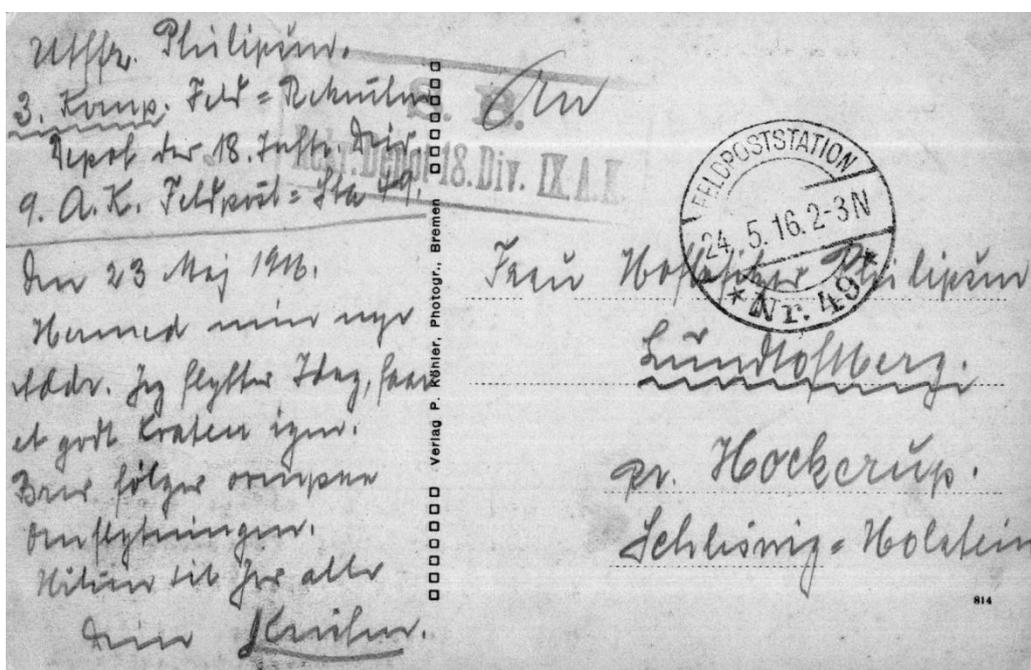 Utffz. Philipsen.
3. Komp. Feld = Rekruten
Depot der 18. Inftr. Div.
9. A.K. Feldpost = Sta 49.
Den 23 Maj 1916.
Hermed min nye
Addr. Jeg flytter Idag, faar
et godt Kvarter igen.
Brev følger
Omflytningen.
Hilsen til Jer alle
Din
S. B.
Rekr. Depot 18. Div. IX A.K.
Verlag P. Köhler, Photogr., Bremen
An
FELDPOSTSTATION
24. 5. 16. 2-3N
* Nr. 49 *
Frau Hofbesitzer Philipsen
Lundtoftberg.
pr. Hockerup.
Schleswig = Holstein
814